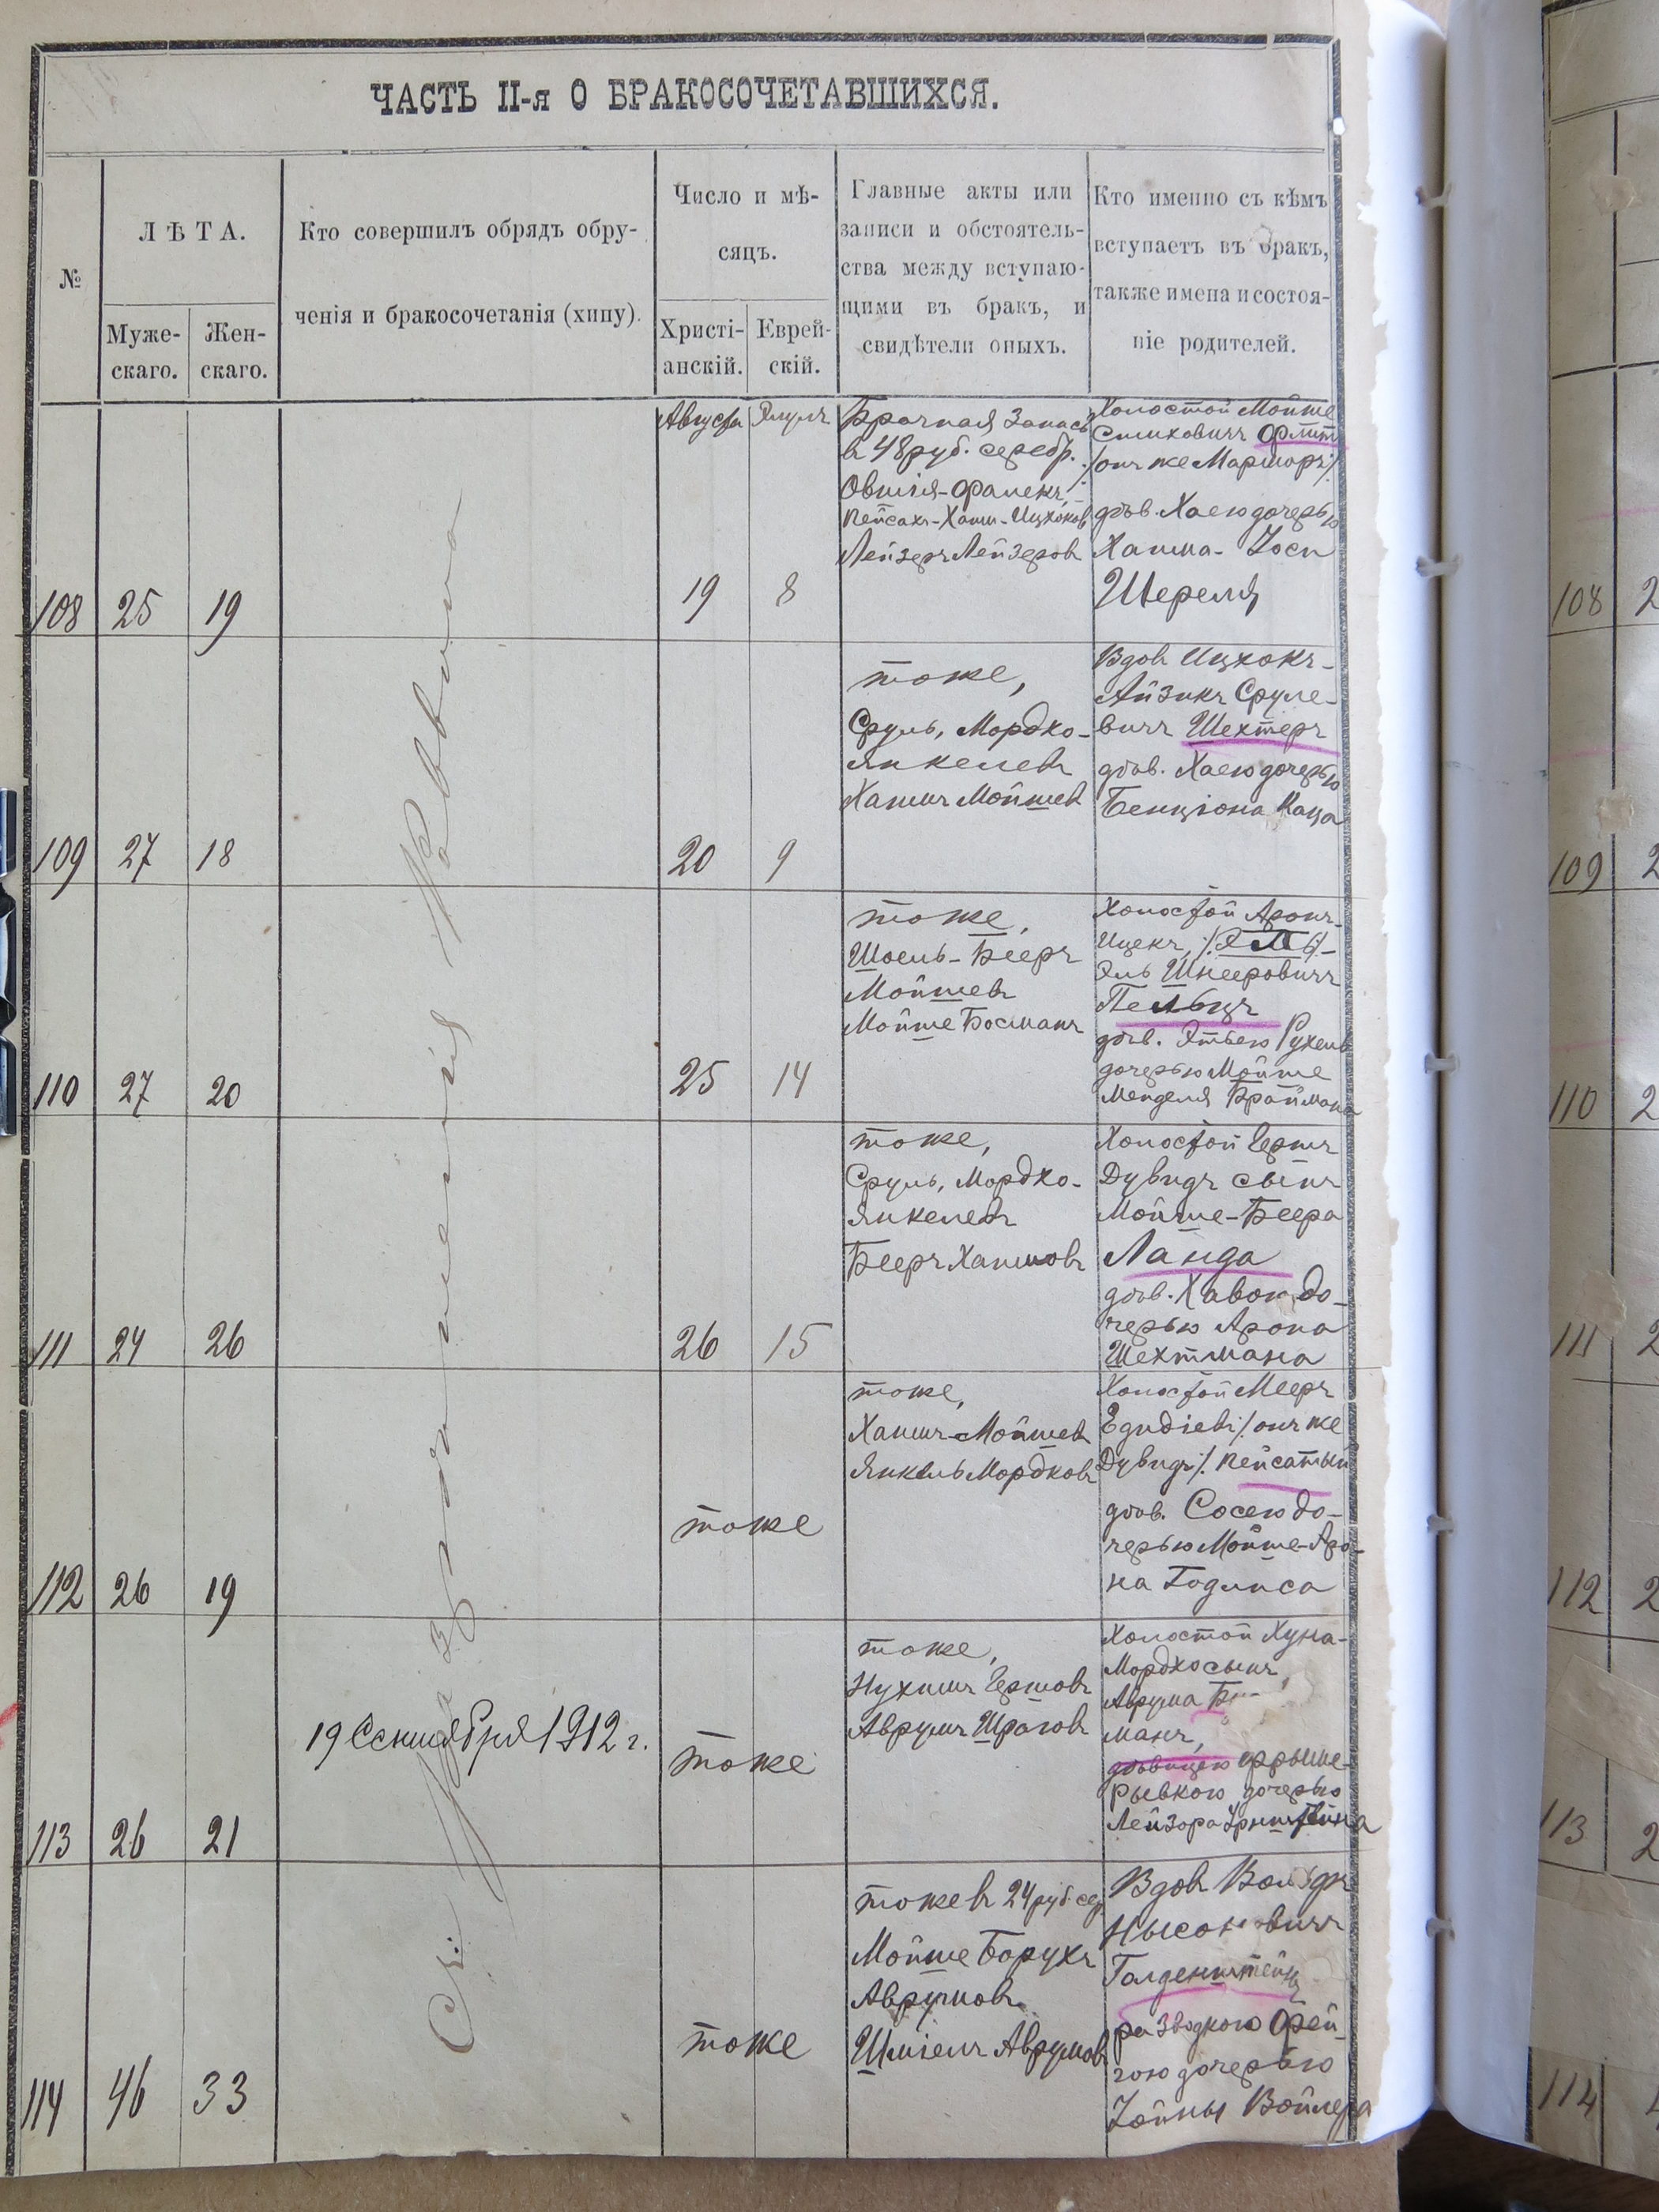 ЧАСТЬ II-я О БРАКОСОЧЕТАВШИХСЯ.
№
ЛѢТА.
Муже-
скаго.
Жен-
скаго.
Кто совершилъ обрядъ обру-
ченія и бракосочетанія (хипу).
Число и мѣ-
сяцъ.
Христі-
анскій.
Еврей-
скій.
Главные акты или
записи и обстоятель-
ства между вступаю-
щими въ бракъ, и
свидѣтели оныхъ.
Кто именно съ кѣмъ
вступаетъ въ бракъ,
также имена и состоя-
ніе родителей.
108
25
19
Августа
Элулъ
19
8
Брачная запись
в 48 руб. серебр.
Овшія-Фалекъ,
Пейсахъ-Хаим-Ицхоков
Лейзеръ Лейзеров
Холостой Мойше
он же
дѣв. Хаею дочерью
Хаима-
109
27
18
20
9
тоже,
Сруль, Мордко-
Янкелевъ
Хаимъ Мойшев
Вдов Ицхокъ-
Айзикъ Сруле-
вичъ Шехтеръ
дѣв. Хаею дочерью
Бенціона Каца
110
27
20
25
14
тоже,
Шоель-Бееръ
Мойшевъ
Мойше Босманъ
Холостой Аронъ-
Ицекъ,
Эль Шнееровичъ
Пельцъ
дѣв. Этьею Рухель
дочерью Мойше
Менделя Браймана
111
24
26
26
15
тоже,
Сруль, Мордко-
Янкелевъ
Бееръ Хаимовъ
Холостой Гершъ
Дувидъ сынъ
Мойше-Беера
Ланда
дѣв. Хавою до-
черью Арона
Шехтмана
112
26
19
тоже
тоже,
Хаимъ-Мойшев
Янкель Мордковъ
Холостой Мееръ
Едидіевъ /: он же
Дувидъ :/ Пейсатый
дѣв. Сосею до-
черью Мойше-Аро-
на Годлиса
113
26
21
19 Сентября 1912 г.
тоже
тоже,
Нухимъ Гершовъ
Аврумъ Шраговъ
Холостой Хуна-
Мордко сынъ
Аврума
манъ,
дѣвицею Фрыме-
Рывкою дочерью
Лейзора
114
46
33
тоже
тоже в 24 руб. сер.
Мойше Борухъ
Аврумовъ
Шміелъ Аврумовъ
Вдов
Нысоновичъ
Голденштейнъ
разводкою Фей-
гою дочерью
Зойны Войлера